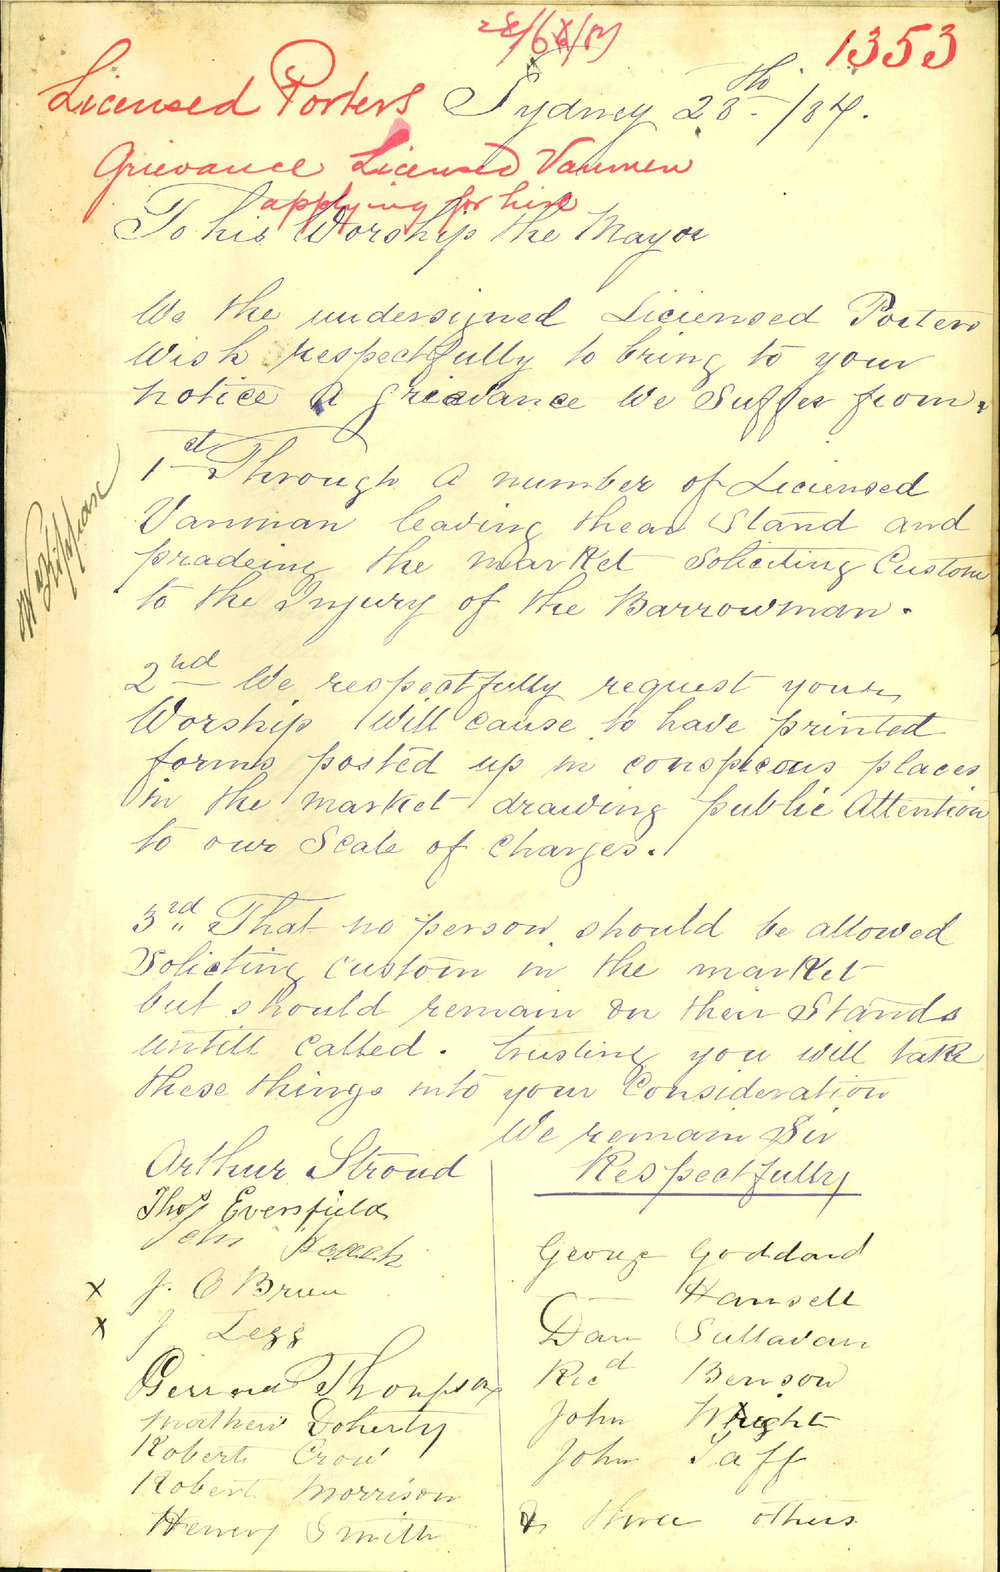 28/6/87
1353
Licensed Porters
Sydney 28th /87.
Grievance Licensed Vanmen
applying for hire
To his Worship the Mayor
We the undersigned Liciensed Porters
Wish respectfully to bring to your
notice A grieavance We Suffer from.
1st Through A number of Liciensed
Vanman leaving thear Stand and
pradeing the market Soliciting Custom
to the Injury of the Barrowman.
2nd We respectfully request your
Worship Will cause to have printed
forms posted up in conspicous places
in the market drawing public Attention
to our Scale of Charges.
3rd That no person should be allowed
Soliciting custom in the market
but should remain on their Stands
untill called. trusting you will take
these things into your Consideration
We remain Sir
Respectfully
Arthur Stroud
Thos Eversfield
John
x J. O Brien
x J Legg
Thompson
Mathew Doherty
Robert Crow
Robert Morrison
Henery Smith
George Goddard
Hansell
Dan Sullavan
Ricd Benson
John Wright
John Taff
& three others